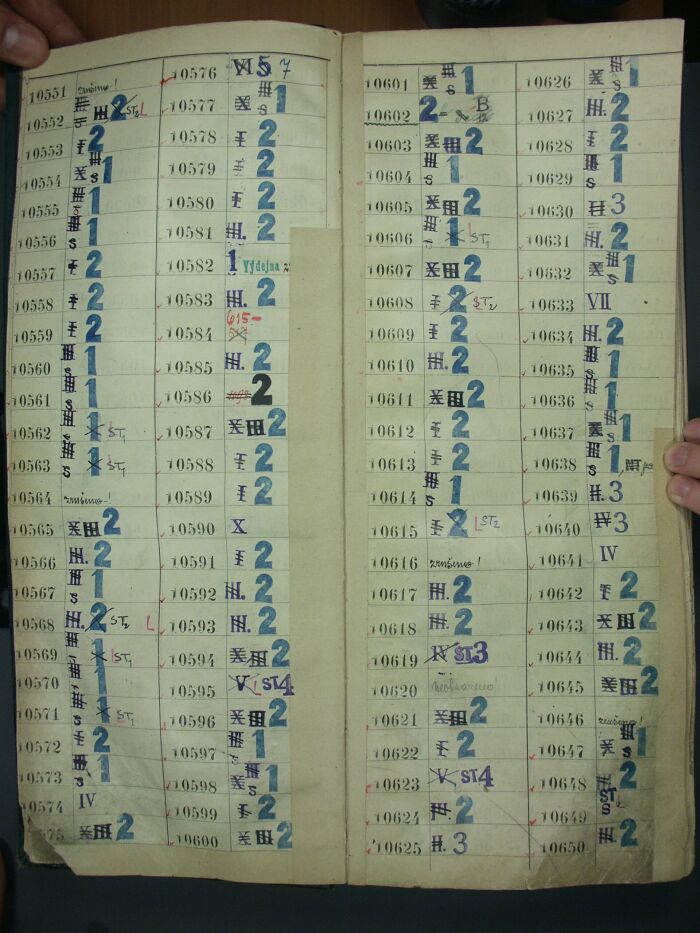 10551 zrušeno!
10552 III. S 2 ST2 L
10553 I 2
10554 X III. S 1
10555 III. S 1
10556 III. S 1
10557 I 2
10558 I 2
10559 I 2
10560 III. S 1
10561 III. S 1
10562 III. S 1 ST1
10563 III. S 1 ST1
10564 zrušeno!
10565 X III 2
10566 III. 2
10567 III S 1
10568 III. 2 ST2 L
10569 III S 1 ST1
10570 III. S 1
10571 III. S 1 ST1
10572 I 2
10573 III. S 1
10574 IV
75 X III 2
10576 VI 5 7
10577 X III S 1
10578 I 2
10579 I 2
10580 I 2
10581 III. 2
10582 1 Výdejna
10583 III. 2
10584 615-
10585 III. 2
10586 2
10587 X III 2
10588 I 2
10589 I 2
10590 X
10591 I 2
10592 III. 2
10593 III. 2
10594 X III 2
10595 V L ST4
10596 X III 2
10597 III. S 1
10598 X III S 1
10599 I 2
10600 X III 2
10601 X III S 1
10602 2 = B
10603 X III 2
10604 III S 1
10605 X III 2
10606 III S 1 ST1
10607 X III 2
10608 I 2 ST2
10609 I 2
10610 III. 2
10611 X III 2
10612 I 2
10613 I 2
10614 III S 1
10615 I 2 L ST2
10616 zrušeno!
10617 III. 2
10618 III. 2
10619 IV ST3
10620 neobsazeno!
10621 X III 2
10622 I 2
10623 V ST4
10624 III. 2
10625 II. 3
10626 X III S 1
10627 III. 2
10628 I 2
10629 III S 1
10630 II 3
10631 III. 2
10632 X III S 1
10633 VII
10634 III. 2
10635 III S 1
10636 III S 1
10637 X III S 1
10638 III S 1
10639 II. 3
10640 IV 3
10641 IV
10642 I 2
10643 X III 2
10644 III. 2
10645 X III 2
10646 zrušeno!
10647 X III S 1
10648 III. 2
10649 ST S
10650 III. 2